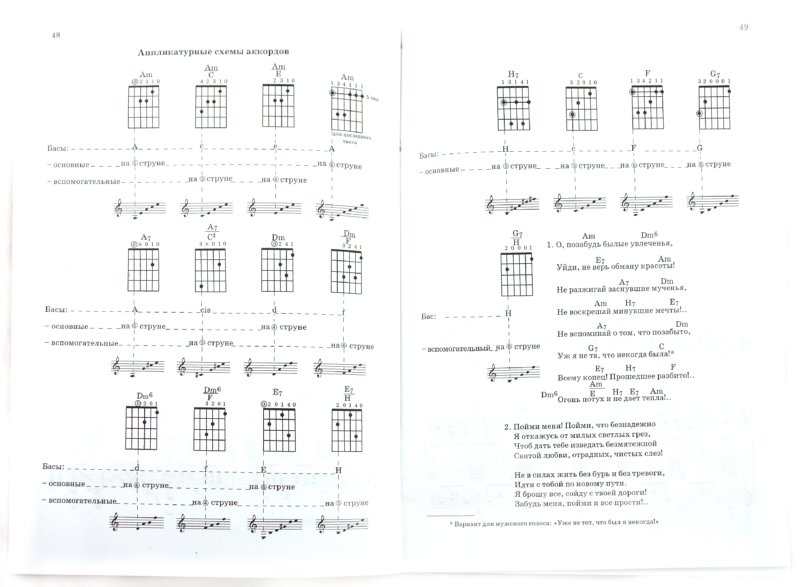 48
Аппликатурные схемы аккордов
Am Am/C Am/E Am
2310 42310 2310 134111
5 лад
для последнего такта
Басы: A c e A
– основные на ⑤ струне на ⑥ струне
– вспомогательные на ⑤ струне на ④ струне
A7 A7/C♯ Dm Dm/F
×010 3×020 241
Басы: A cis d f
– основные на ⑤ струне на ④ струне
– вспомогательные на струне на ④ струне
Dm6 Dm6/F E7 E7/H
Басы: d f E H
– основные на ④ струне на ⑥ струне
– вспомогательные на ④ струне на ⑤ струне
49
H7 C F G7
13141 32010 134211 320001
Басы: H c F G
– основные на ⑤ струне на ⑤ струне на ⑥ струне на ⑥ струне
G7/H
20001
Бас: H
– вспомогательный на ⑤ струне
Am Dm6
1. О, позабудь былые увлеченья,
E7 Am
Уйди, не верь обману красоты!
A7 Dm
Не разжигай заснувшие мученья,
Am H7 E7
Не воскрешай минувшие мечты!..
A7 Dm
Не вспоминай о том, что позабыто,
G7 C
Уж я не та, что некогда была!*
E7 H7 E7 F
Всему конец! Прошедшее разбито!..
Dm6 Am/E H7 E7 Am
Огонь потух и не дает тепла!..
2. Пойми меня! Пойми, что безнадежно
Я откажусь от милых светлых грез,
Чтоб дать тебе изведать безмятежной
Святой любви, отрадных, чистых слез!
Не в силах жить без бурь и без тревоги,
Идти с тобой по новому пути.
Я брошу все, сойду с твоей дороги!
Забудь меня, пойми и все прости!..
* Вариант для мужского голоса: «Уже не тот, что был я некогда!»